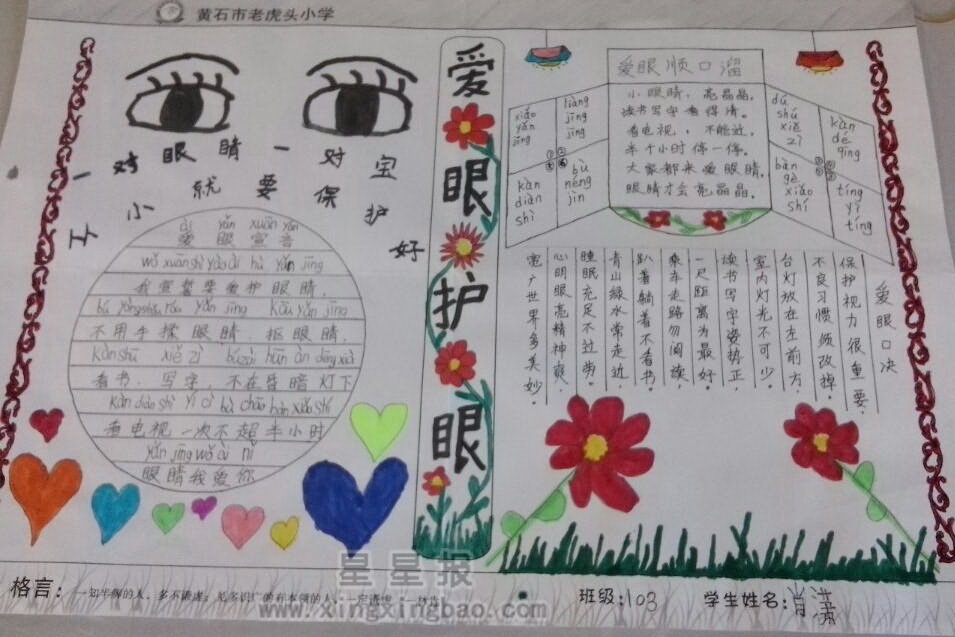 黄石市老虎头小学
一对眼睛一对宝
从小就要保护好
ài yǎn xuān yán
爱眼宣言
wǒ xuān shì yào ài hù yǎn jīng
我宣誓要爱护眼睛，
bù yòng shǒu róu yǎn jīng kōu yǎn jīng
不用手揉眼睛 抠眼睛，
kàn shū xiě zì bù zài hūn àn dēng xià
看书、写字，不在昏暗灯下
kàn diàn shì yī cì bù chāo bàn xiǎo shí
看电视一次不超半小时
yǎn jīng wǒ ài nǐ
眼睛我爱你
爱眼护眼
爱眼顺口溜
小眼睛，亮晶晶，
读书写字看得清。
看电视，不能近，
半个小时停一停。
大家都来爱眼睛，
眼睛才会亮晶晶。
xiǎo yǎn jīng
liàng jīng jīng
kàn diàn shì
bù néng jìn
dú shū xiě zì
kàn dé qīng
bàn gè xiǎo shí
tíng yī tíng
爱眼口决
保护视力很重要，
不良习惯须改掉。
台灯放在左前方，
室内灯光不可少。
读书写字姿势正，
一尺距离为最好。
乘车走路勿阅读，
趴着躺着不看书。
青山绿水常走近，
睡眠充足不过劳。
心明眼亮精神爽，
宽广世界多美妙。
格言：一知半解的人，多不谦虚；见多识广有本领的人，一定谦虚。
班级：103
学生姓名：肖潇
星星报
www.xingxingbao.com